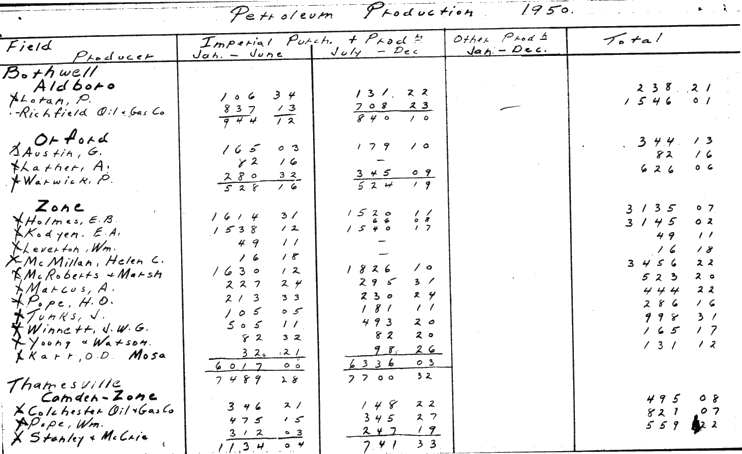 Petroleum Production 1950.
Field Producer Imperial Purch. & Prod'n Jan. - June July - Dec Other Prod'n Jan. - Dec. Total
Bothwell
Aldboro
Lotan, P. 106 34 131. 22 238 21
Richfield Oil & Gas Co 837 13 708 23 — 1546 01
944 12 840 10
Orford
Austin, G. 165 03 179 10 344 13
Lather, A. 82 16 — 82 16
Warwick, P. 280 32 345 09 626 06
528 16 524 19
Zone
Holmes, E.B. 1614 31 1520 11 3135 07
66 08
Kodyen, E.A. 1538 12 1540 17 3145 02
Leverton, Wm. 49 11 — 49 11
McMillan, Helen C. 16 18 — 16 18
McRoberts & Marsh 1630 12 1826 10 3456 22
Marcus, A. 227 24 295 31 523 20
Pope, H.D. 213 33 230 24 444 22
Tunks, J. 105 05 181 11 286 16
Winnett, J.W.G. 505 11 493 20 998 31
Young & Watson. 82 32 82 20 165 17
Karr, O.D. Mosa 32. 21 98. 26 131 12
6017 00 6336 03
7489 28 7700 32
Thamesville
Camden-Zone
Colchester Oil & Gas Co 346 21 148 22 495 08
Pope, Wm. 475 15 345 27 821 07
Stanley & McCrie 312 03 247 19 559 22
1134 04 741 33